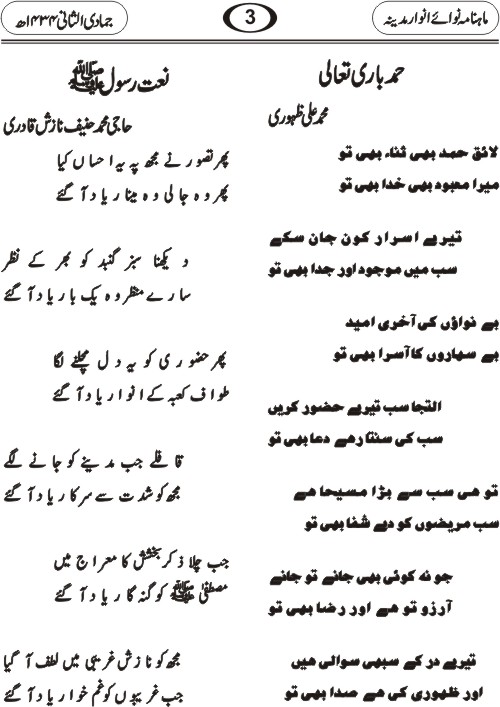 ماہنامہ نوائے انوار مدینہ
3
جمادی الثانی ۱۴۳۴ھ
حمد باری تعالی
محمد علی ظہوری
لائق حمد بھی ثناء بھی تو
میرا معبود بھی خدا بھی تو
تیرے اسرار کون جان سکے
سب میں موجود اور جدا بھی تو
بے نواؤں کی آخری امید
بے سہاروں کا آسرا بھی تو
التجا سب تیرے حضور کریں
سب کی سنتا رھے دعا بھی تو
تو ھی سب سے بڑا مسیحا ھے
سب مریضوں کو دے شفا بھی تو
جو نہ کوئی بھی جانے تو جانے
آرزو تو ھے اور رضا بھی تو
تیرے در کے سبھی سوالی ھیں
اور ظہوری کی ھے صدا بھی تو
نعت رسول ﷺ
حاجی محمد حنیف نازش قادری
پھر تصور نے مجھ پہ یہ احساں کیا
پھر وہ جالی وہ مینار یاد آ گئے
دیکھنا سبز گنبد کو بھر کے نظر
سارے منظر وہ یک بار یاد آ گئے
پھر حضوری کو یہ دل مچلنے لگا
طواف کعبہ کے انوار یاد آ گئے
قافلے جب مدینے کو جانے لگے
مجھ کو شدت سے سرکار یاد آ گئے
جب چلا ذکر بخشش کا معراج میں
مصطفیٰ ﷺ کو گنہ گار یاد آ گئے
مجھ کو نازش غریبی میں لطف آ گیا
جب غریبوں کو غم خوار یاد آ گئے